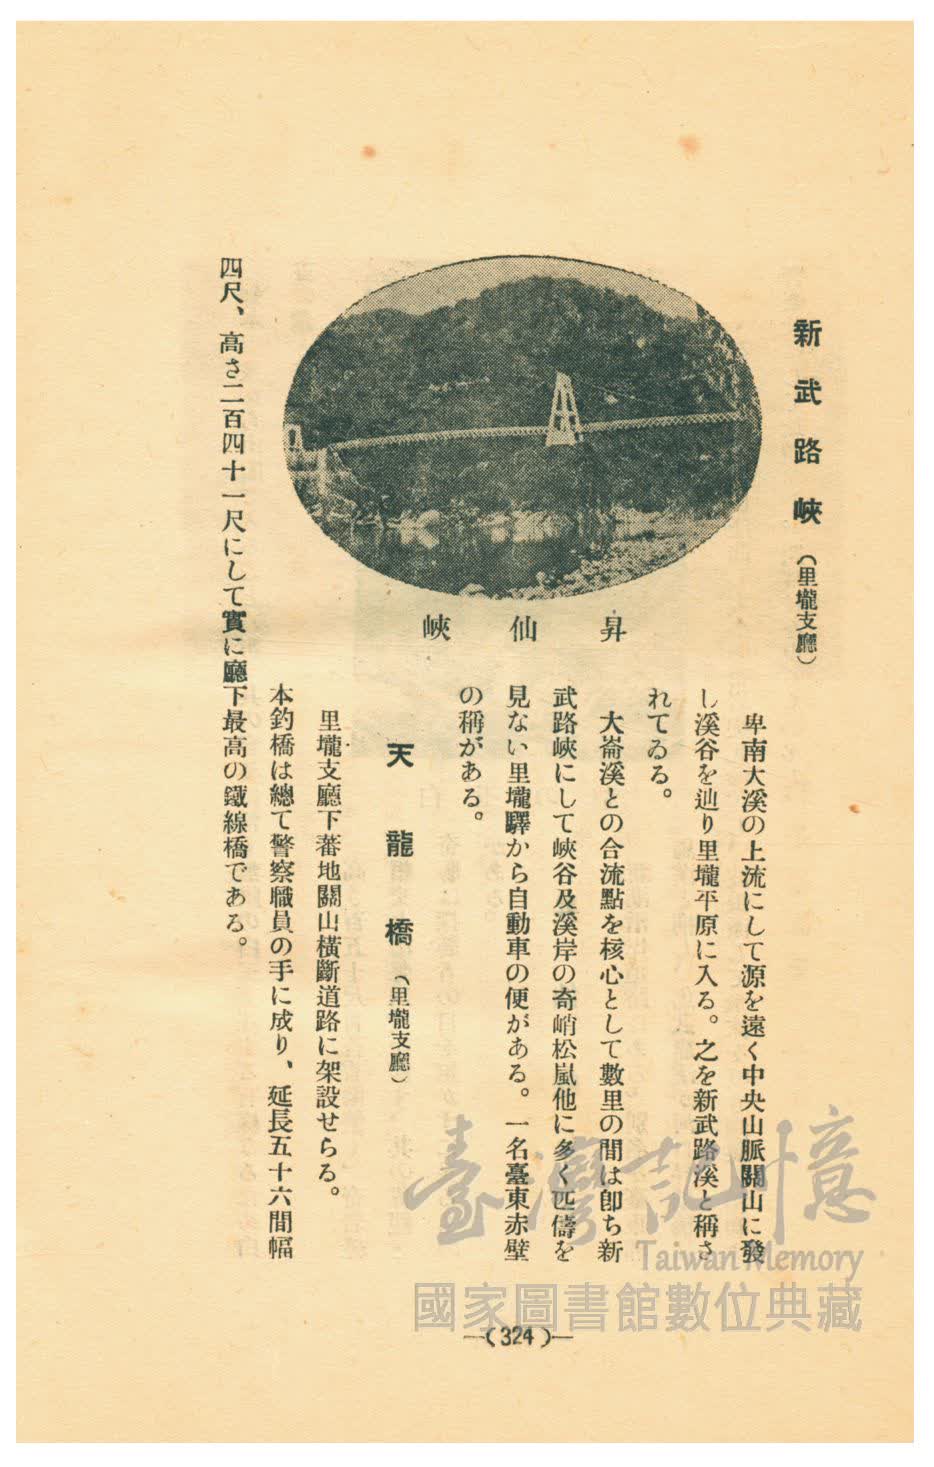 新武路峽(里壠支廳)
昇仙峽
卑南大溪の上流にして源を遠く中央山脈關山に發
し溪谷を辿り里壠平原に入る。之を新武路溪と稱さ
れてゐる。
大崙溪との合流點を核心として數里の間は卽ち新
武路峽にして峽谷及溪岸の奇峭松嵐他に多く匹儔を
見ない里壠驛から自動車の便がある。一名臺東赤壁
の稱がある。
天龍橋(里壠支廳)
里壠支廳下蕃地關山橫斷道路に架設せらる。
本釣橋は總て警察職員の手に成り、延長五十六間幅
四尺、高さ二百四十一尺にして實に廳下最高の鐵線橋である。
—(324)—
臺灣記憶
Taiwan Memory
國家圖書館數位典藏